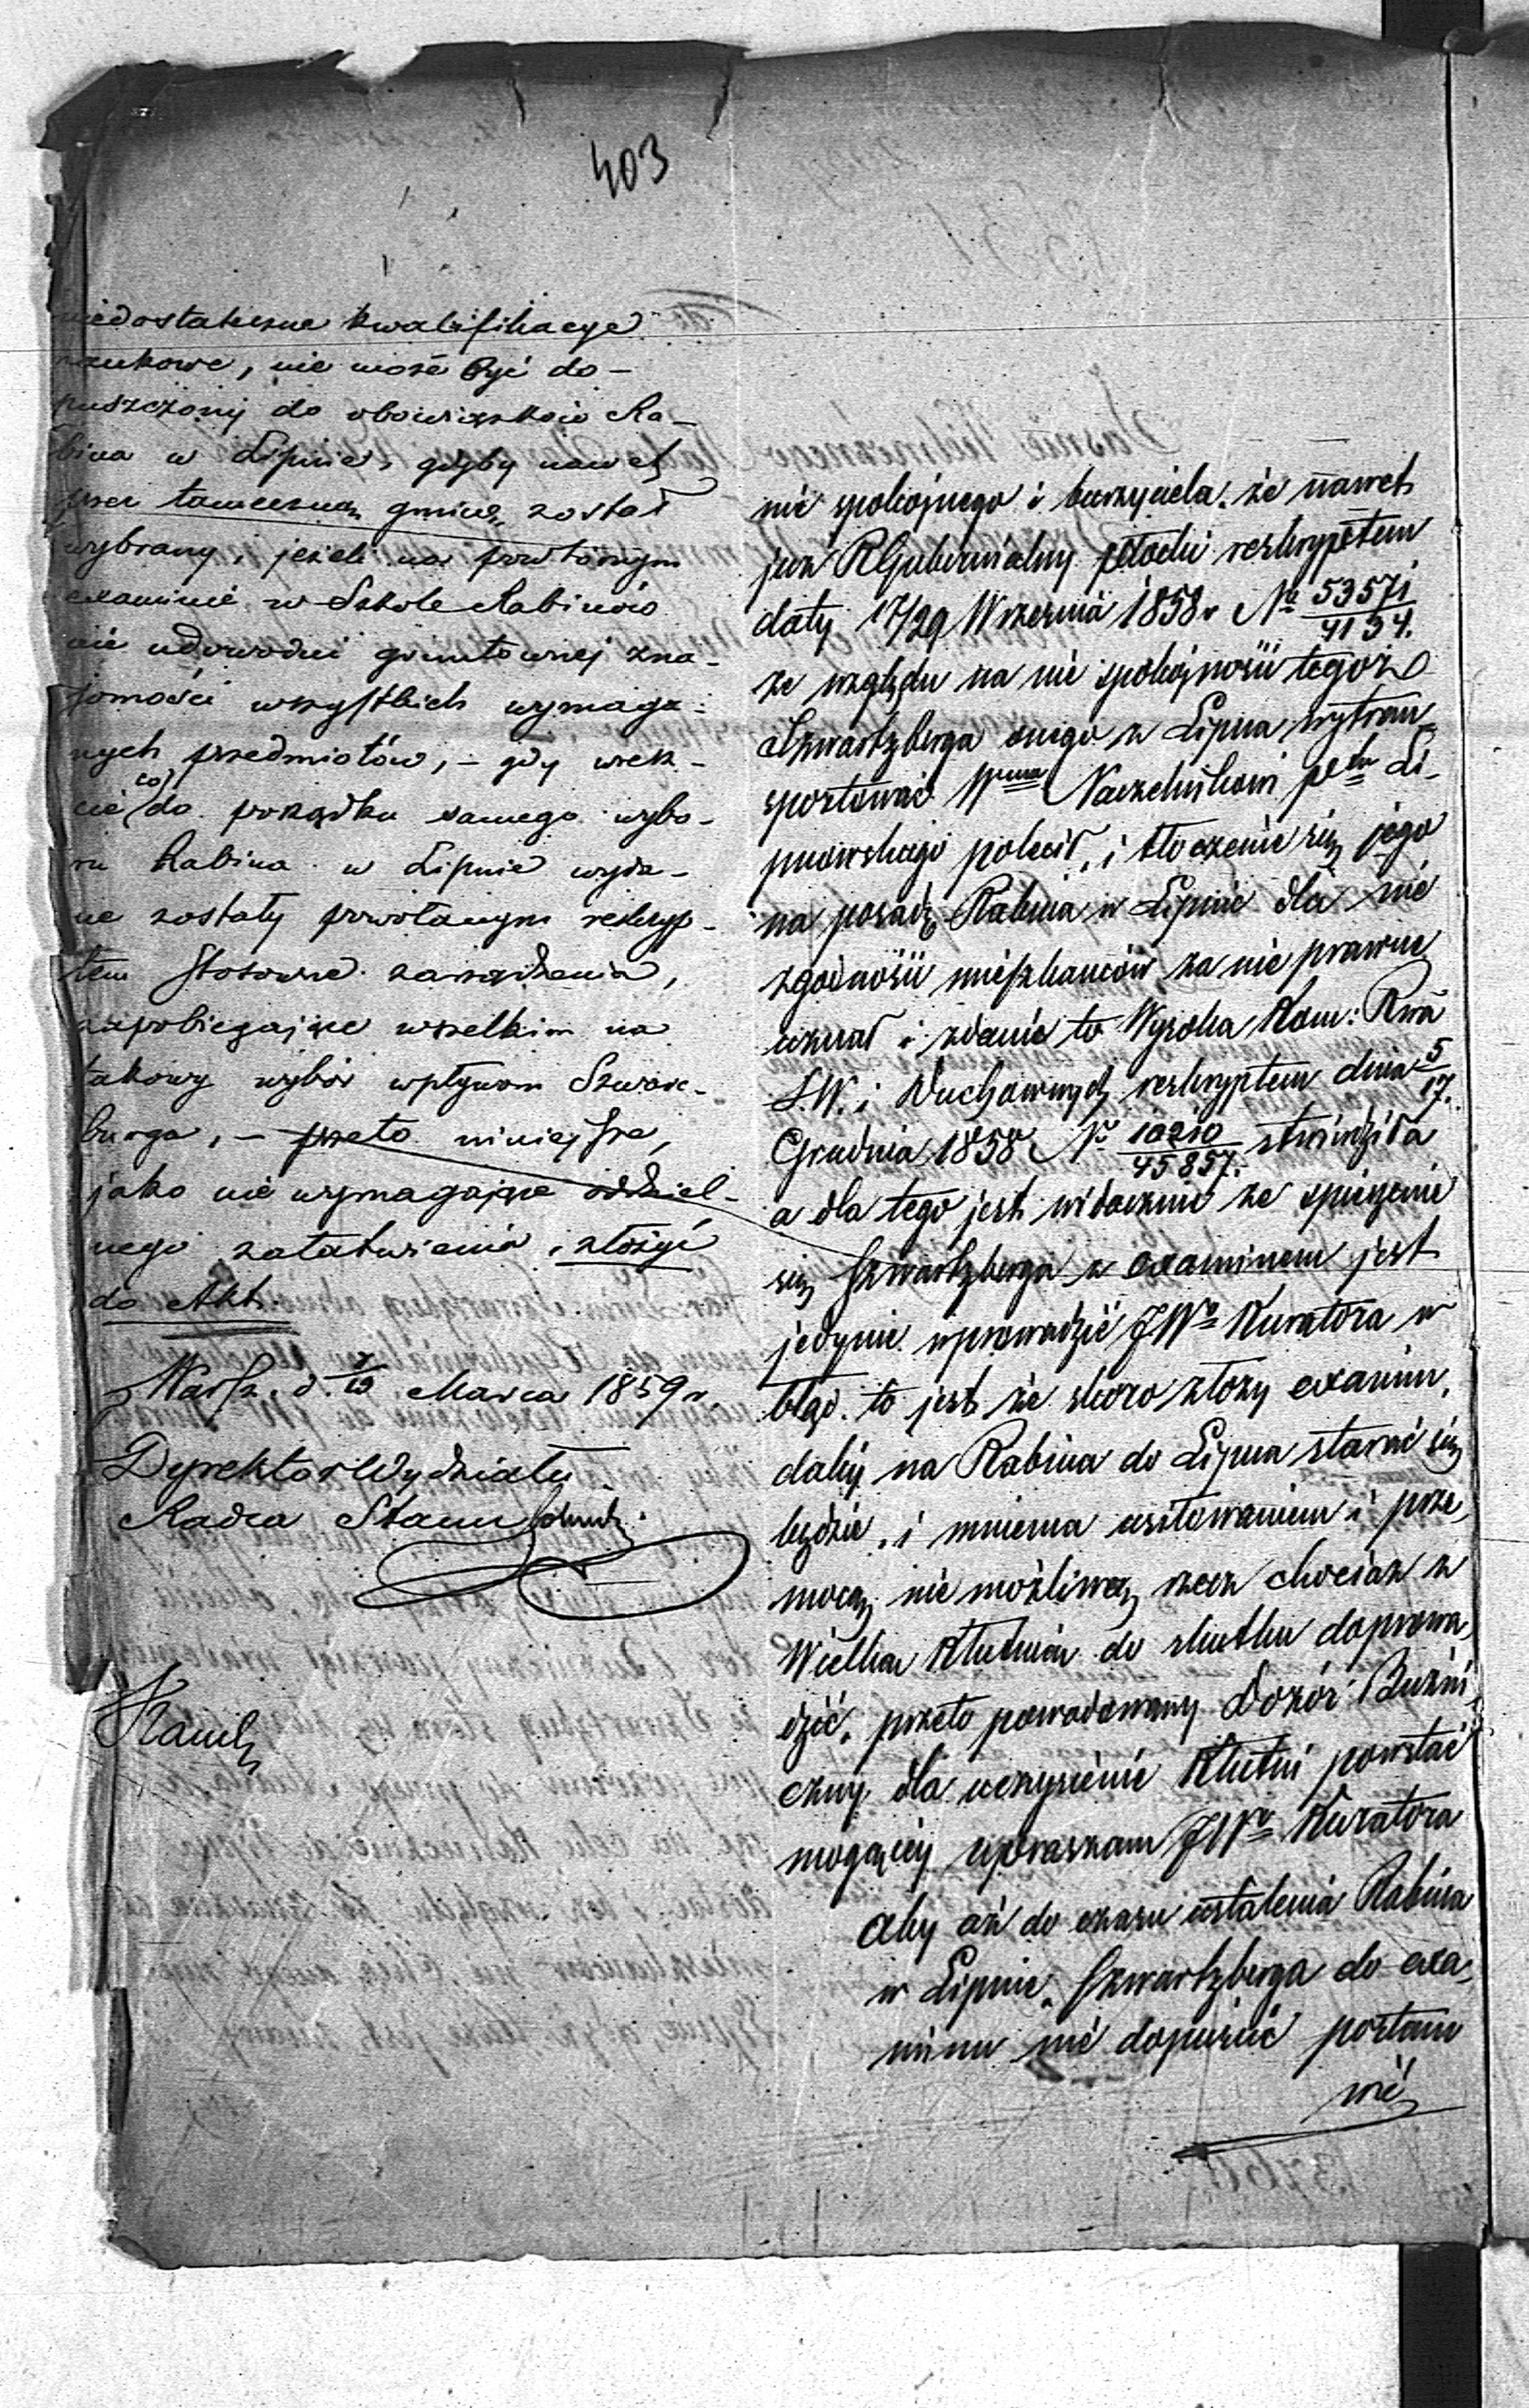 403
niedostateczne kwalifikacye
naukowe, nie może być do-
puszczony do obowiązków Ra-
bina w Lipnie, gdyby nawet
przez tameczną gminę został
wybrany, jeżeli na powtórnym
examinie w Szkole Rabinów
nie udowodni gruntownej zna-
jomości wszystkich wymaga-
nych przedmiotów, – gdy wresz-
cie co do porządku samego wybo-
ru Rabina w Lipnie wyda-
ne zostały powołanym reskryp-
tem stosowne zarządzenia,
zapobiegające wszelkim na
takowy wybór wpływom Szwarc-
berga, – przeto niniejsze,
jako nie wymagające oddziel-
nego załatwienia, złożyć
do Akt.
Warsz. d. 7/19 Marca 1859 r.
Dyrektor Wydziału
Radca Stanu
nie spokojnego i burzyciela. że nawet
już RGubernialny płocki reskryptem
daty 17/29 Września 1858 r No 53571/4134.
ze względu na nie spokojności tegoż
Szwartzberga onego z Lipna wytran-
sportować Wmu Naczelnikowi ptu Li-
pnowskiego polecił, i tłoczenie się jego
na posadę Rabina w Lipnie dla nie
zgodności mieszkańców za nie prawne
uznał i zdanie to Wysoka Kom: Rwa
S.W. i Duchownych reskryptem dnia 5/17.
Grudnia 1858 No 10210/45857. stwierdziła
a dla tego jest widocznie że spieszenie
się Szwartzberga z examinem jest
jedynie wprowadzić JWo Kuratora w
błąd. to jest że skoro złoży examin,
dalej na Rabina do Lipna starać się
będzie, i mniema usiłowaniem i prze-
mocą nie możliwą rzecz chociaż z
Wielką Kłutnią do skutku doprowa-
dzić. przeto powodowany Dozór Bużni-
czny dla uczynienie Kłutni powstać
mogącej upraszam JWo Kuratora
aby aż do czasu ustalenia Rabina
w Lipnie, Szwartzberga do exa-
minu nie dopuścić postano
wić